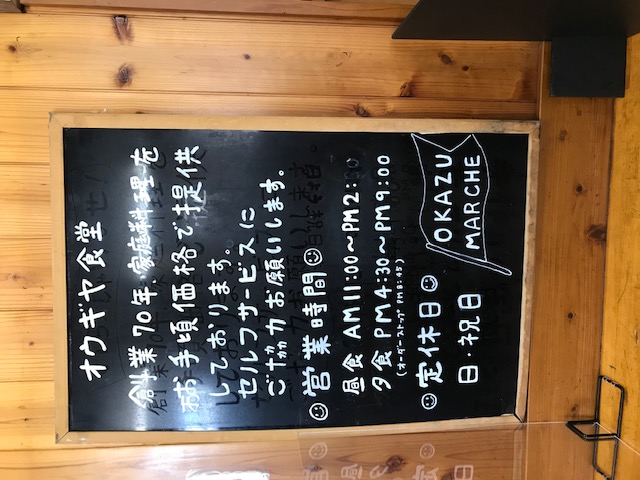 オウギヤ食堂
創業70年 家庭料理を
お手頃価格で提供
しております。
セルフサービスに
ご協力お願いします。
営業時間
昼食 AM11:00〜PM2:00
夕食 PM4:30〜PM9:00
(オーダーストップ PM8:45)
定休日
日・祝日
OKAZU
MARCHE